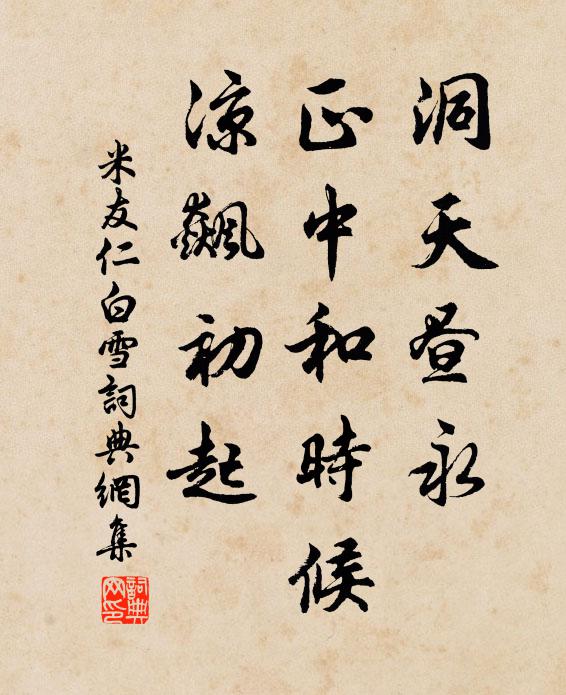 洞天昼永
正中和時候
涼飆初起
米友仁白雪詞典網集
詞典網印